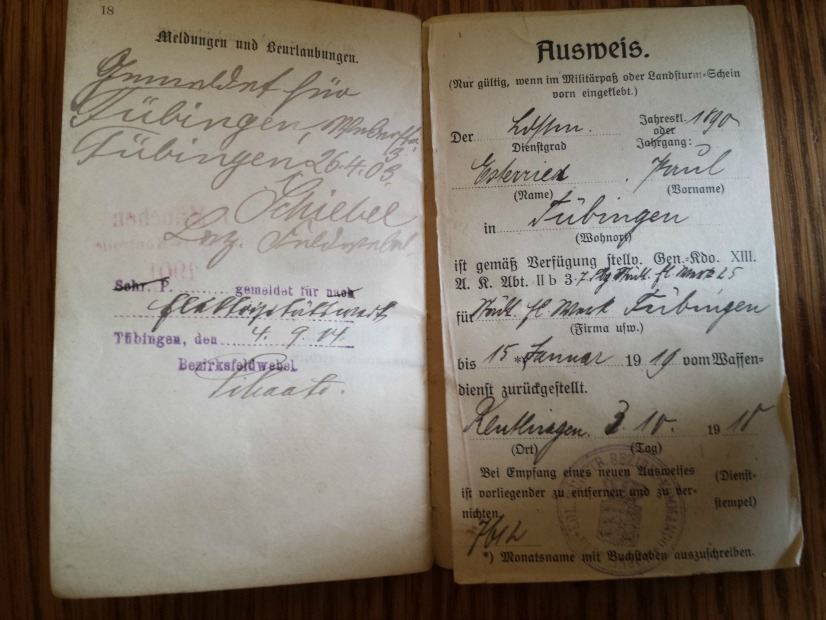 18
Meldungen und Beurlaubungen.
Gemeldet für
Tübingen,
Tübingen 26.4.03.
Schiebel
Bez. Feldwebel
Schr. P. gemeldet für nach
Tübingen, den 4. 9. 04
Bezirksfeldwebel
1
Ausweis.
(Nur gültig, wenn im Militärpaß oder Landsturm-Schein
vorn eingeklebt.)
Der Ldstm. Jahreskl. 1890
oder
Dienstgrad Jahrgang:
Esterried Paul
(Name) (Vorname)
in Tübingen
(Wohnort)
ist gemäß Verfügung stellv. Gen.-Kdo. XIII.
A. K. Abt. II b 3.
für Städt. El Werk Tübingen
(Firma usw.)
bis 15 *Januar 1919 vom Waffen-
dienst zurückgestellt.
Reutlingen. 3. 10. 1918
(Ort) (Tag)
Bei Empfang eines neuen Ausweises (Dienst-
ist vorliegender zu entfernen und zu ver- stempel)
nichten.
*) Monatsname mit Buchstaben auszuschreiben.